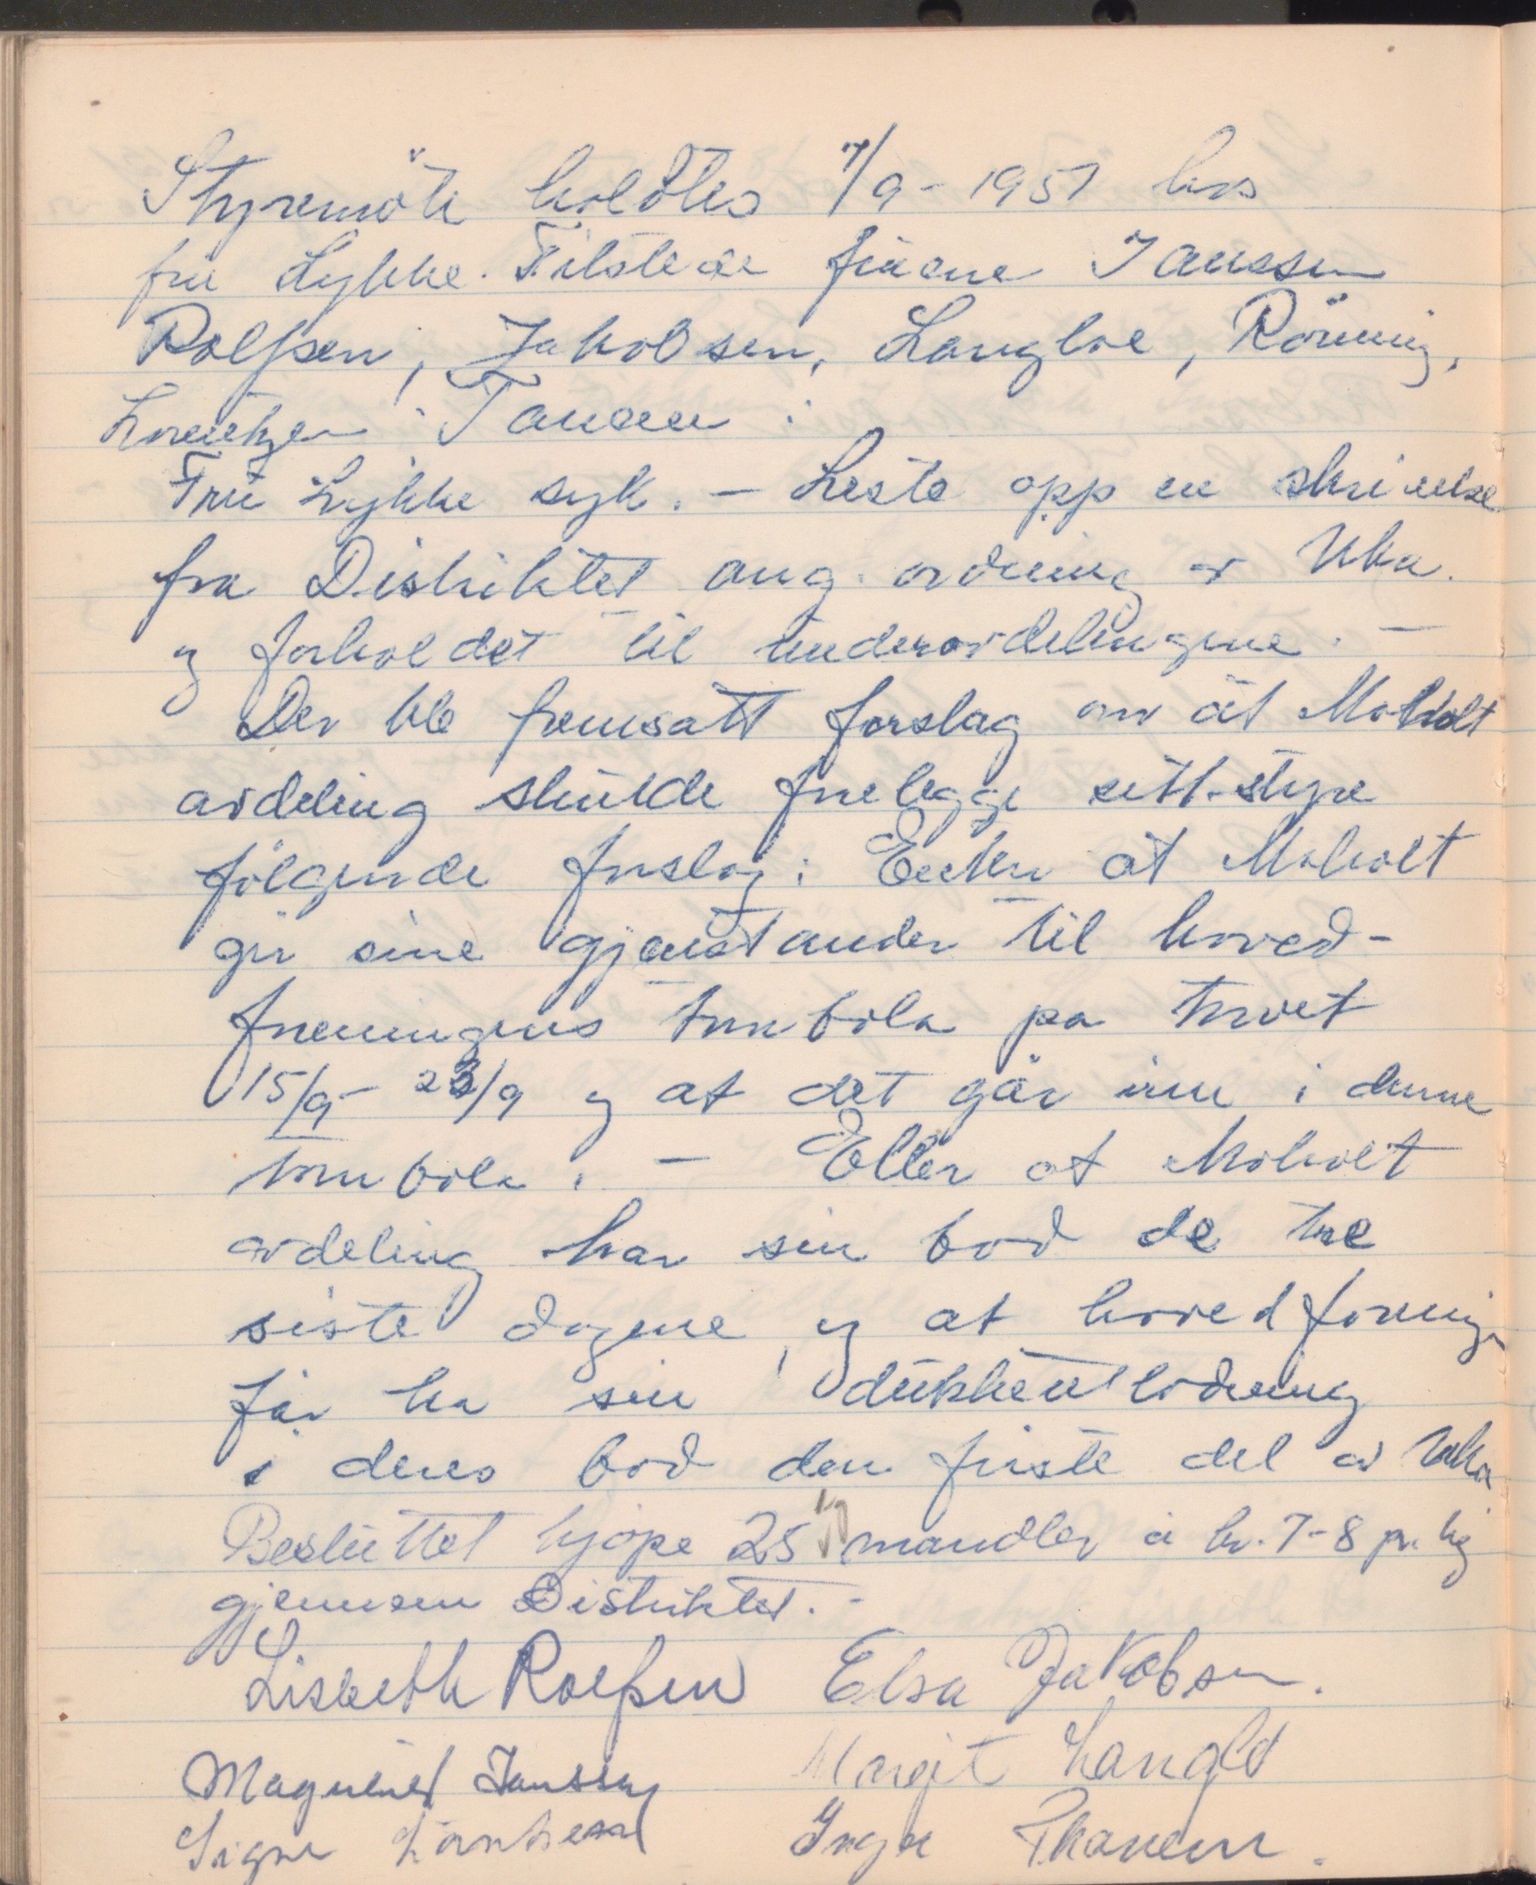 Styremöte holdtes 7/9 - 1951 hos
fru Lykke. Tilstede fruene Janssen
Rolfsen, Jakobsen, Langloe, Rönning,
Lorentzen Tanem.
Fru Lykke syk. - Leste opp en skrivelse
fra Distriktet ang. ordning av Uka.
og forholdet til underavdelingene. -
Der ble fremsatt forslag om at Moholt
avdeling skulde forelegge sitt styre
fölgende forslag: Enten at Moholt
gir sine gjenstander til hoved-
foreningens tombola på torvet
15/9 - 23/9 og at det går inn i denne
tombola. - Eller at Moholt
avdeling har sin bod de tre
siste dagene, og at hovedforening
får ha sin dukkeutlodning
i deres bod den första del av Uka
Besluttet kjøpe 25 kg mandler à kr. 7-8 pr. kg
gjennem Distriktet. -
Lisbeth Rolfsen Elsa Jakobsen.
Magnhild Janssen Margit Langlo
Signe Lorentzen Inga Thanem.